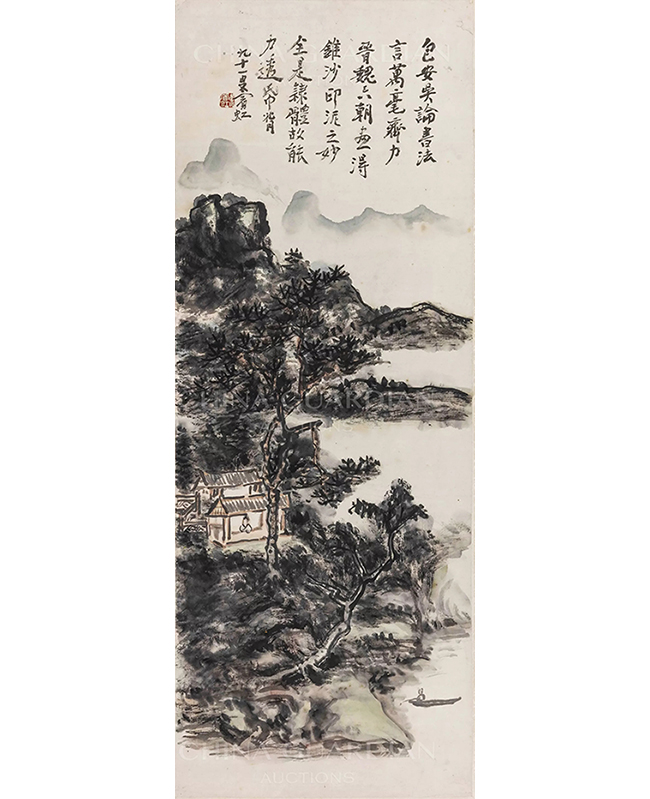 包安吳論書法
言萬毫齊力
晉魏六朝畫得
錐沙印泥之妙
全是隸體故能
力透帋背
九十一叟賓虹
CHINA GUARDIAN
AUCTIONS
CHINA GUARDIAN
AUCTIONS
CHINA GUARDIAN
AUCTIONS